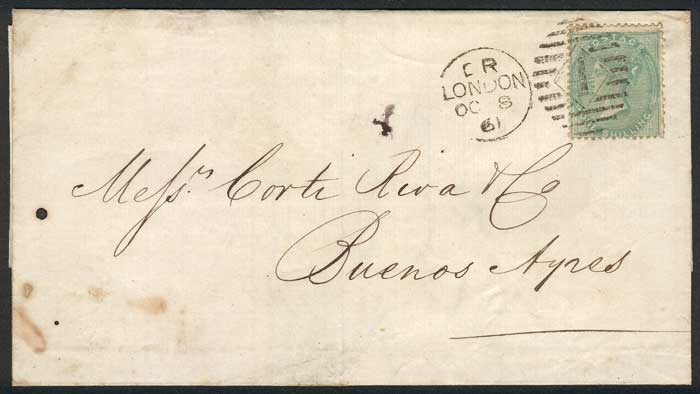 POSTAGE
SHILLING
ER
LONDON
OC 8
61
Messrs Corti Riva & Co
Buenos Ayres